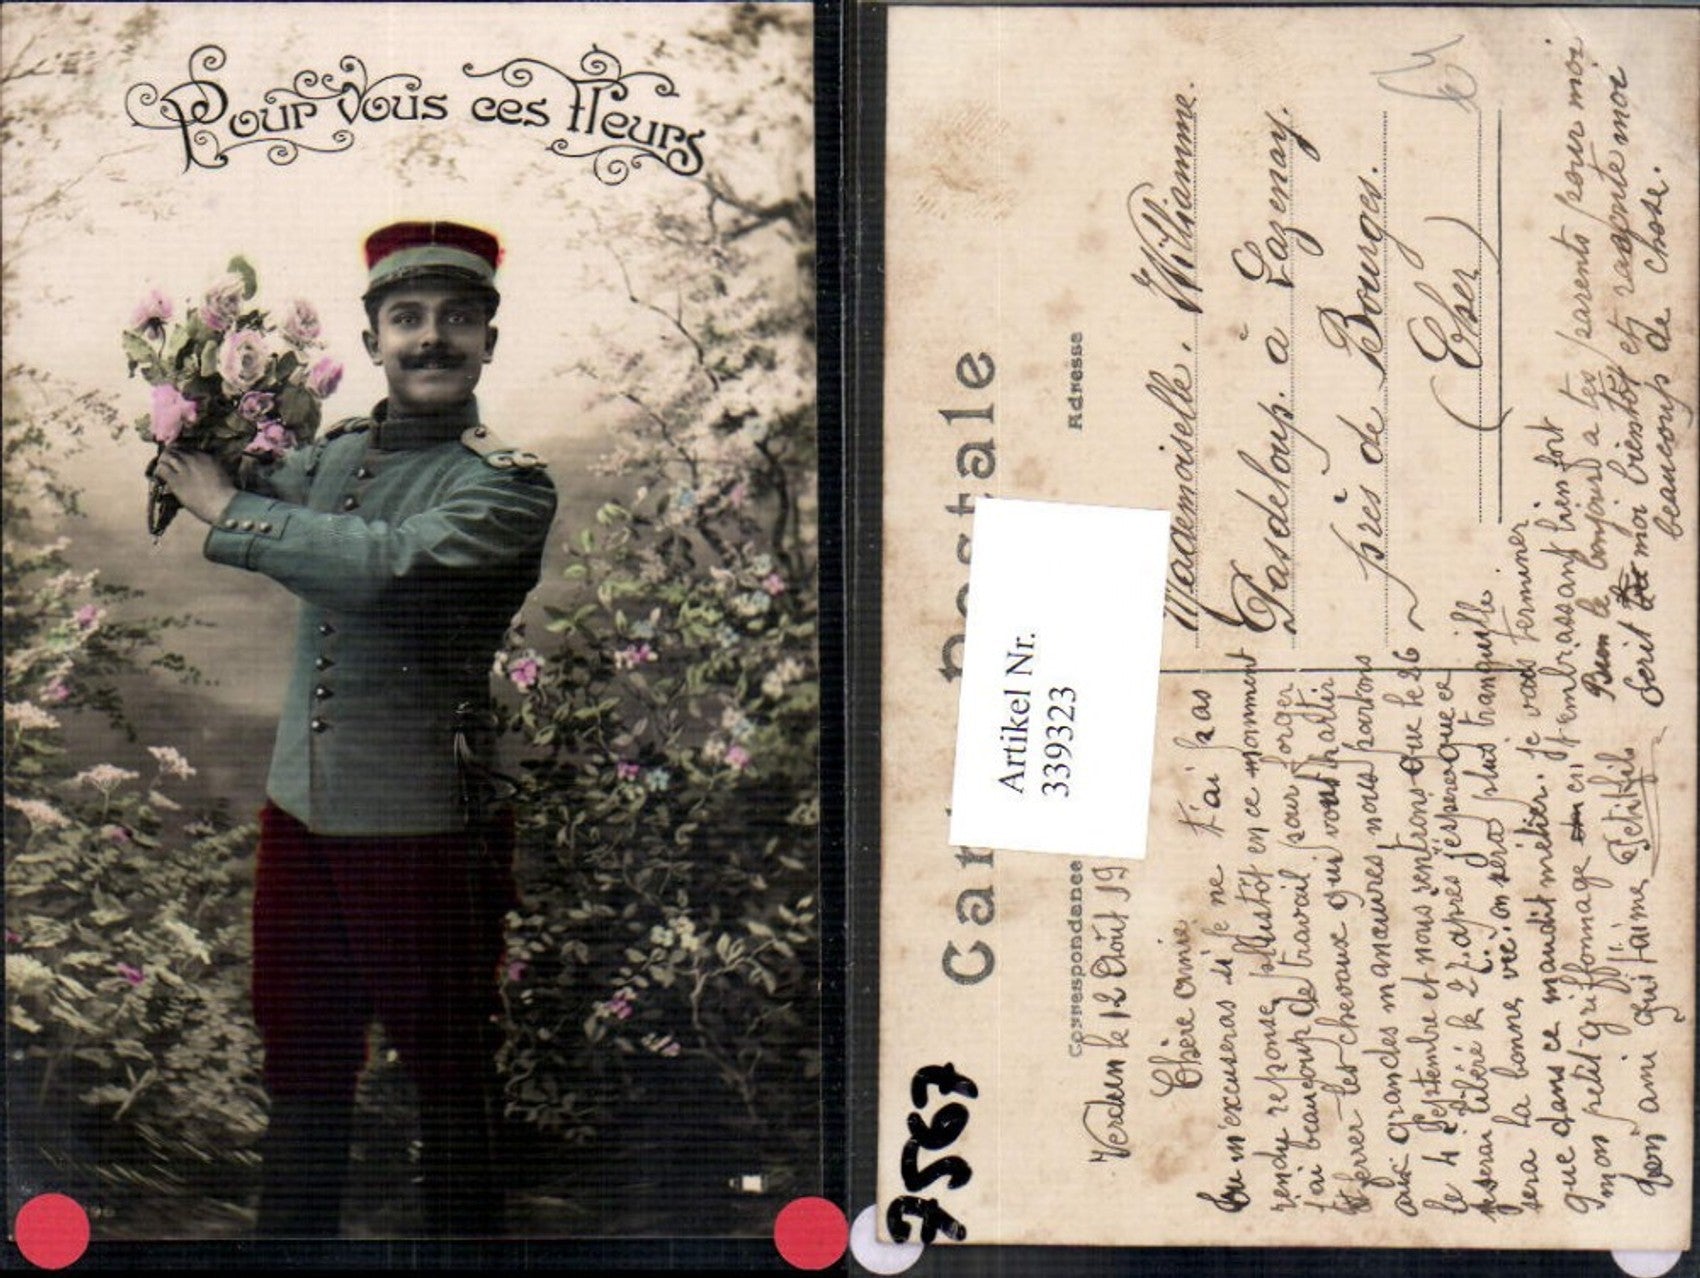 Pour Vous ces Fleurs
Carte postale
Correspondance
Adresse
Artikel Nr.
3393323
7567
Verdun le 12 Août 19
Chère amie
tu m'excuseras si je ne t'ai pas
rendu reponse plustôt en ce momment
j'ai beaucoup de travail pour forger
et ferrer les chevaux qui vont partir
aux grandes manœuvres nous partons
le 4 Septembre et nous rentrons que le 26
serai libéré le 27. après j'espère que ce
sera la bonne vie. on sera plus tranquille
que dans ce maudit métier. je vais terminer
mon petit griffonnage en t'embrassant bien fort
ton ami qui t'aime Petitfils
le bonjour a tes parents pour moi
Ecrit moi bientôt et raconte moi
beaucoup de chose.
Mademoiselle. Willianme.
Pasdeloup. à Lazenay.
près de Bourges.
(Cher)